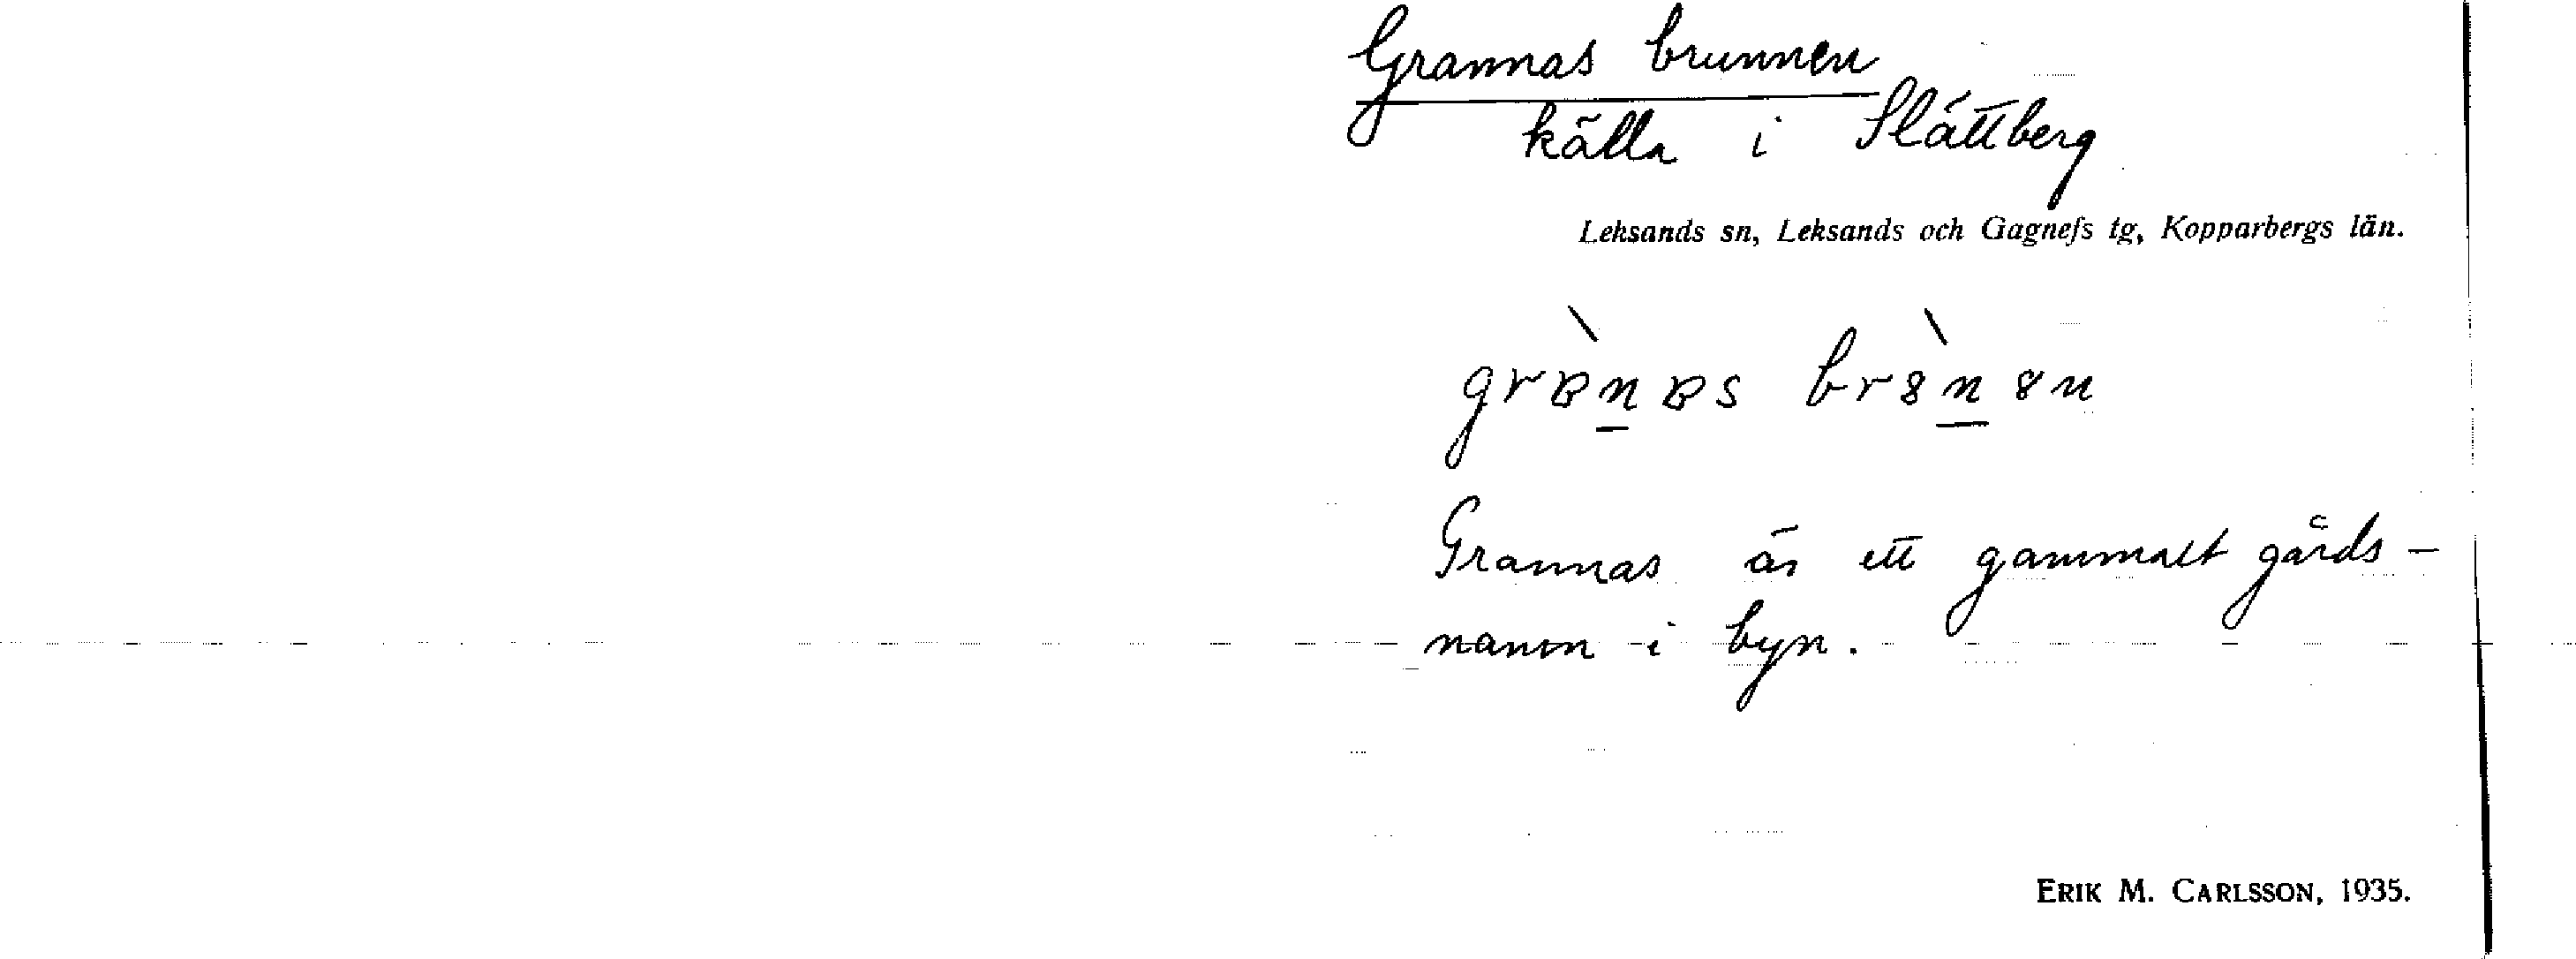 Grannas brunnen
källa i Slättberg
Leksands sn, Leksands och Gagnefs tg, Kopparbergs län.
Grannas är ett gammalt gårds-
namn i byn.
ERIK M. CARLSSON, 1935.